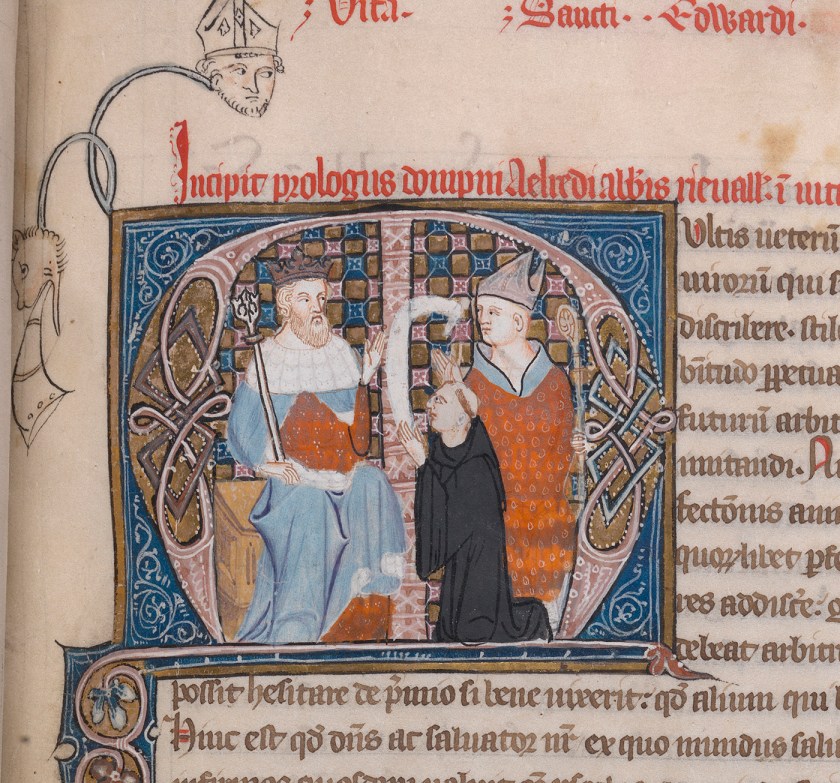 Vita. Sancti. Edwardi.
Incipit prologus dompni Aelredi abbis rieuall. i uita
Ultis ueterū
uirorū qui s
discribere. stil
bitudo ppetua
futurū arbit
imitandi. A
fectōnis am
quorlibet pfe
res addisce.
debeat arbitr
possit hesitare de pimo si bene uixerit: qd alium qui
Hinc est qd dns ac saluator nr ex quo mundus salu